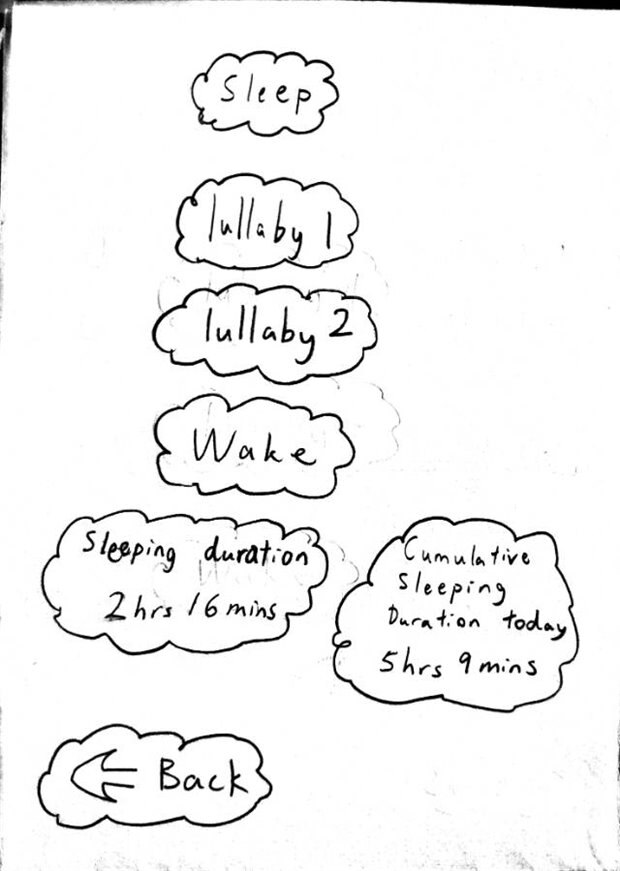 Sleep
lullaby 1
lullaby 2
Wake
Sleeping duration
2 hrs 16 mins
Cumulative
Sleeping
Duration today
5 hrs 9 mins
Back